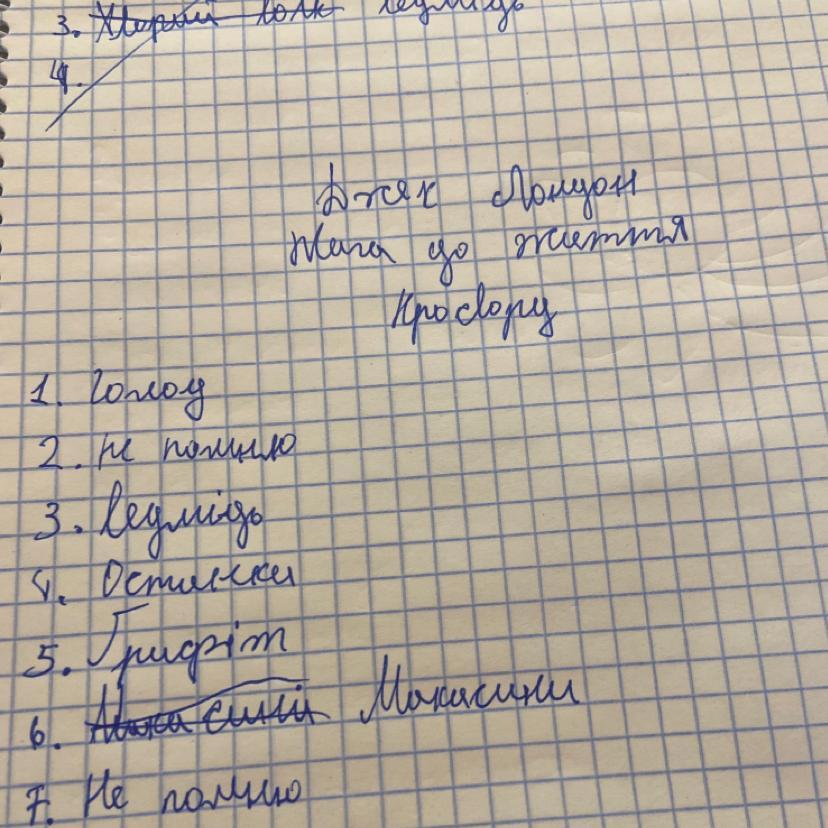 3. Хворий вовк ведмідь
4.
Джек Лондон
Жага до життя
Кросворд
1. Голод
2. не помню
3. Ведмідь
4. Останки
5. Грифіт
6. Мокасини
7. Не помню